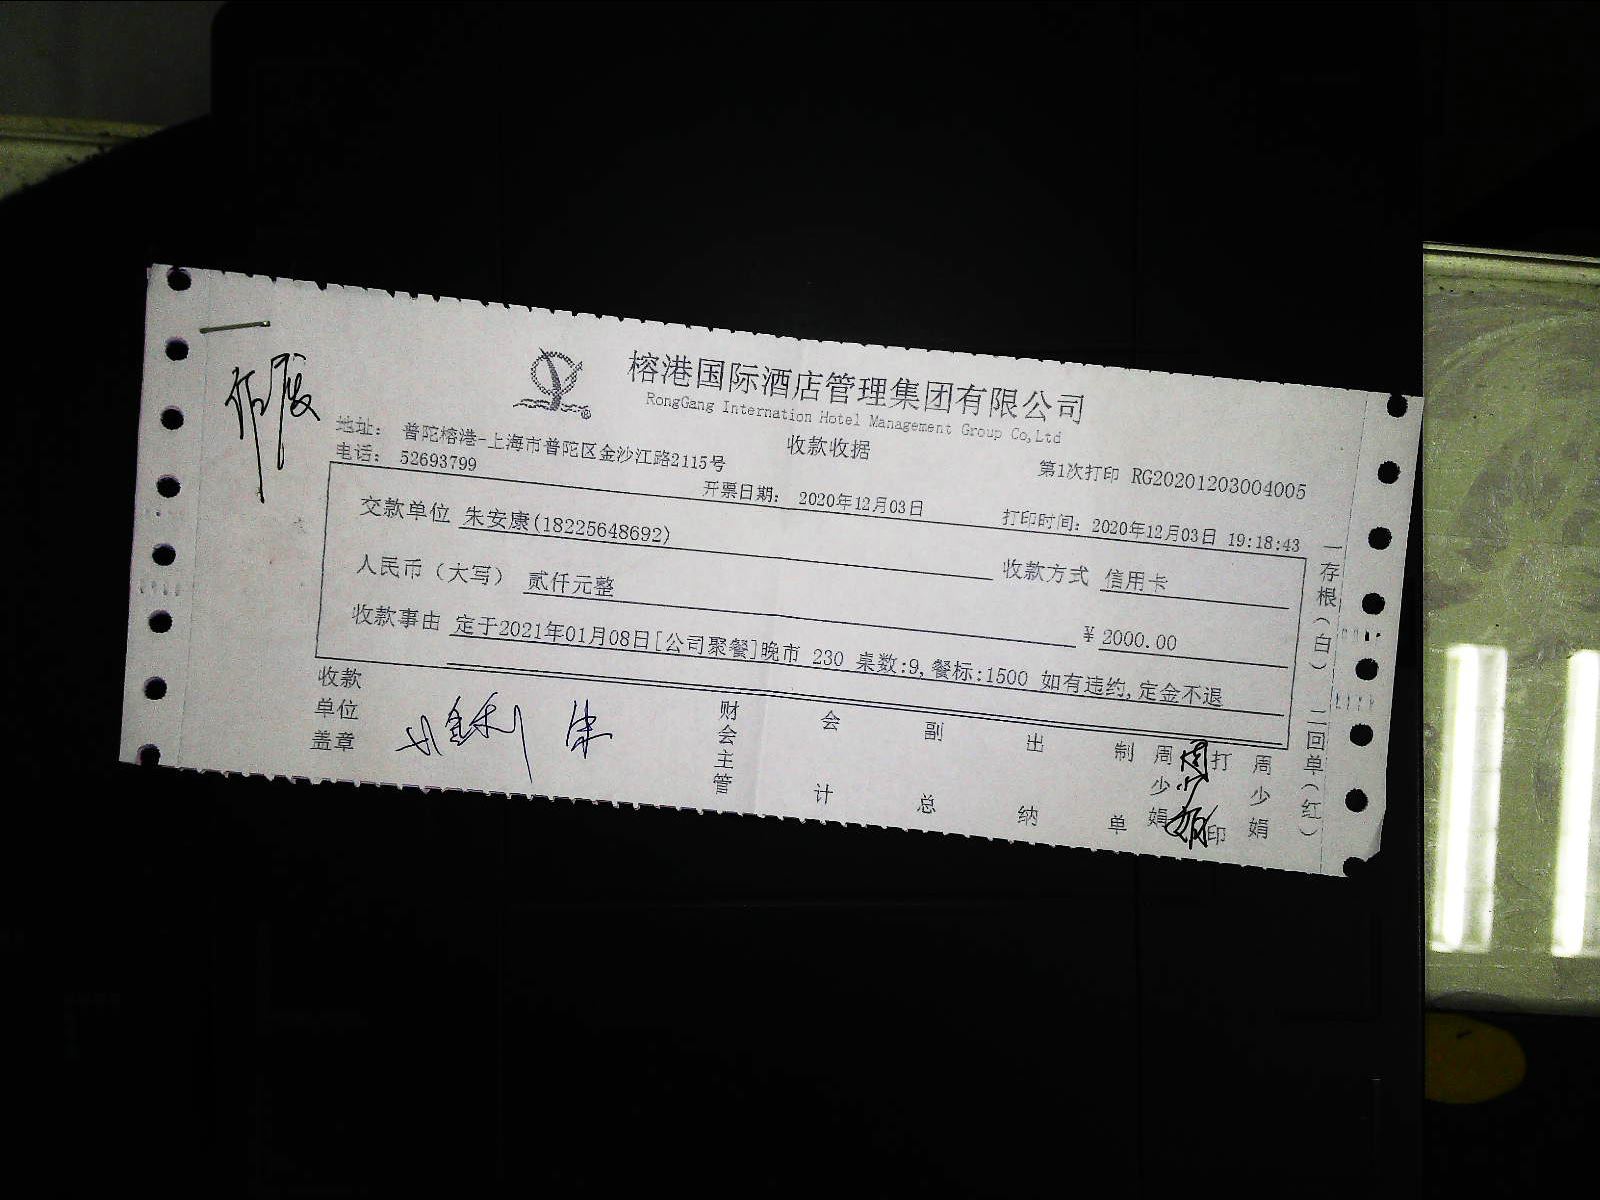 榕港国际酒店管理集团有限公司
RongGang Internation Hotel Management Group Co,Ltd
收款收据
地址: 普陀榕港-上海市普陀区金沙江路2115号
电话: 52693799
第1次打印 RG20201203004005
开票日期: 2020年12月03日
打印时间: 2020年12月03日 19:18:43
交款单位 朱安康(18225648692)
收款方式 信用卡
人民币（大写） 贰仟元整
￥2000.00
收款事由 定于2021年01月08日[公司聚餐]晚市 230 桌数:9,餐标:1500 如有违约,定金不退
收款单位盖章
财会主管
会计
副总
出纳
制单 周少娟
周少娟
打印 周少娟
一存根（白）
二回单（红）